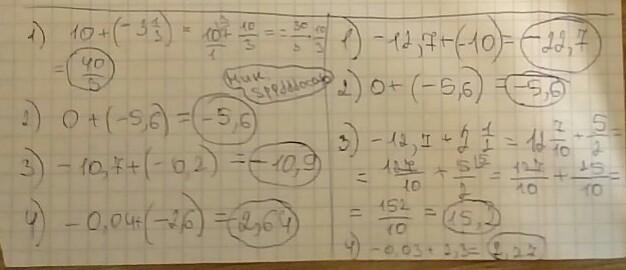 1) 10 + (-3 1/3) =
= 40/3
2) 0 + (-5,6) = -5,6
3) -10,7 + (-0,2) = -10,9
4) -0,04 + (-2,6) = -2,64
1) -12,7 + (-10) = -22,7
2) 0 + (-5,6) = -5,6
3) -12,7 + 2 1/2 = 12 7/10 + 5/2 =
= 127/10 + 5/2 = 127/10 + 25/10 =
= 152/10 = 15,2
4) -0,03 + 2,3 = 2,27